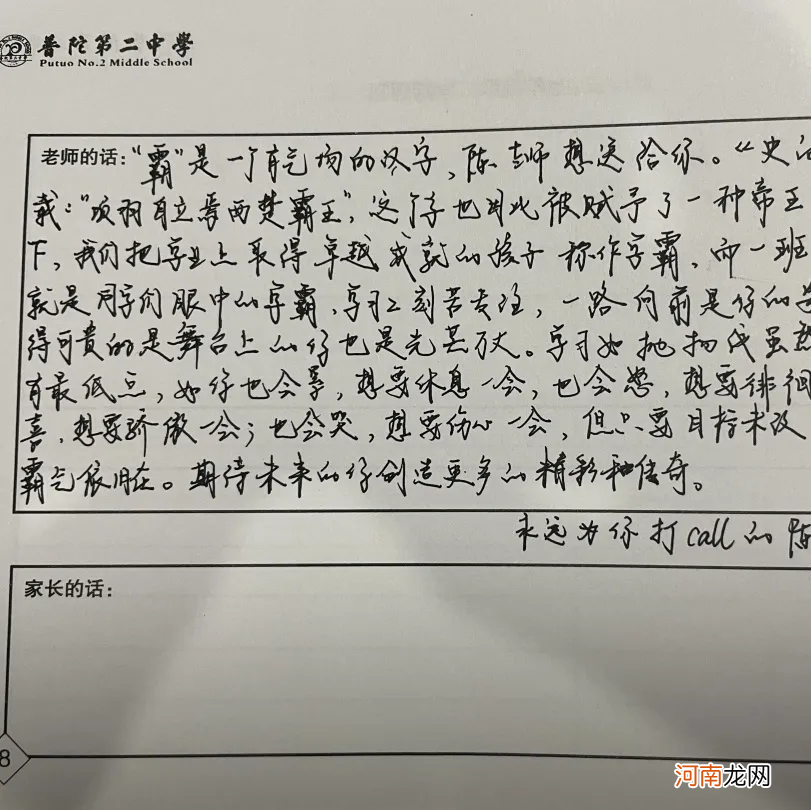 普陀第二中學
Putuo No.2 Middle School
老师的话："霸"是一个有气场的汉字，陈老师想送给你。"史记
载："项羽自立为西楚霸王"，这个字也因此被赋予了一种帝王
下，我们把学业上取得卓越成就的孩子称作学霸，而一班
就是同学们眼中的学霸，学习上刻苦专注，一路向前是你的
得可贵的是舞台上的你也是光芒万丈。学习如抛物线虽
有最低点，如你也会累，想要休息一会，也会愁，想要徘徊
喜，想要骄傲一会；也会哭，想要伤心一会，但只要目标未改
霸气依旧在。期待未来的你创造更多的精彩和传奇。
永远为你打call的陈
家长的话：
8
河南龙网